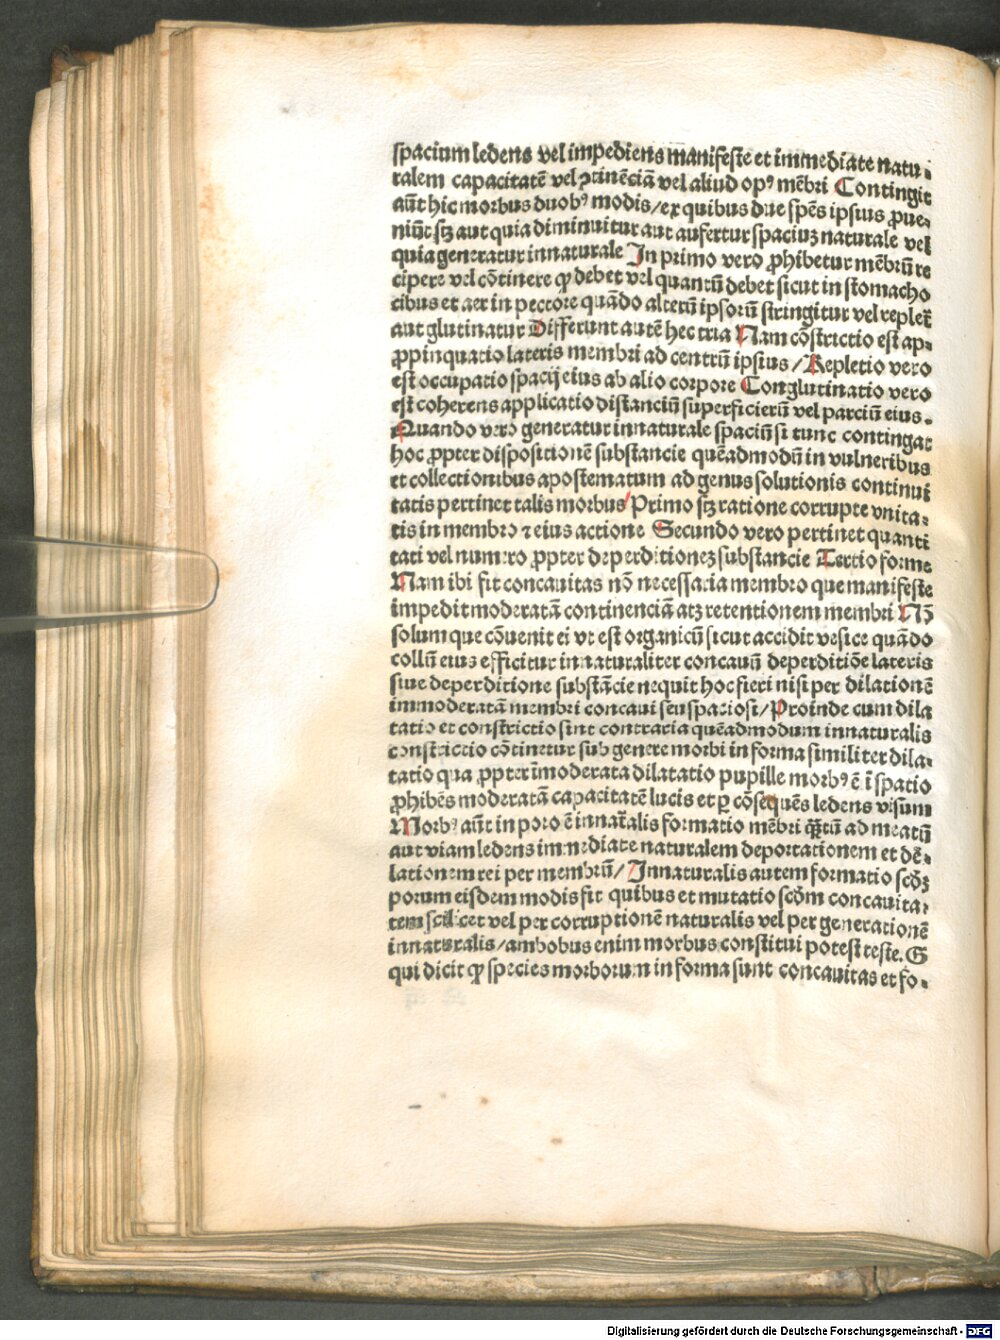 spacium ledens vel impediens mānifeste et immediate natu-
ralem capacitatē vel ꝯtinēciā vel aliud opꝰ mēbri Contingit
aūt hic morbus duobꝰ modis/ex quibus due spēs ipsius ꝓue-
niūt sꝫ aut quia diminuitur aut aufertur spaciuꝫ naturale vel
quia generatur innaturale In primo vero ꝓhibetur mēbrū re
cipere vel cōtinere ꝙ debet vel quantū debet sicut in stomacho
cibus et aer in pectore quādo alterū ipsorū stringitur vel repleť
aut glutinatur Differunt autē hec tria Nam cōstrictio est ap-
ꝓpinquatio lateris membri ad centrū ipsius/Repletio vero
est occupatio spacij eius ab alio corpore Conglutinatio vero
est coherens applicatio distanciū superficierū vel parciū eius.
Quando vero generatur innaturale spaciū si tunc contingat
hoc ꝓpter dispositionē substancie quēadmodū in vulneribus
et collectionibus apostematum ad genus solutionis continui
tatis pertinet talis morbus/Primo sꝫ ratione corrupte vnita-
tis in membro ⁊ eius actione Secundo vero pertinet quanti
tati vel numero ꝓpter deperditioneꝫ substancie Tertio forme
Nam ibi fit concauitas nō necessaria membro que manifeste
impedit moderatā continenciā atꝫ retentionem membri Nō
solum que cōuenit ei vt est organicū sicut accidit vesice quādo
collū eius efficitur innaturaliter concauū deperditiōe lateris
siue deperditione substācie nequit hoc fieri nisi per dilationē
immoderatā membri concaui seu spaciosi/Proinde cum dila
tatio et constrictio sint contraria quēadmodum innaturalis
constrictio cōtinetur sub genere morbi in forma similiter dila-
tatio qua ꝓpter īmoderata dilatatio pupille morbꝰ ē ī spatio
ꝓhibēs moderatā capacitatē lucis et ꝑ cōsequēs ledens visum
Morbꝰ aūt in poro ē innaťalis formatio mēbri qꝫtū ad meatū
aut viam ledens immediate naturalem deportationem et dē-
lationem rei per membrū/Innaturalis autem formatio scďꝫ
porum eisdem modis fit quibus et mutatio scďm concauita-
tem scilicet vel per corruptionē naturalis vel per generationē
innaturalis/ambobus enim morbus constitui potest teste. G
qui dicit ꝙ species morborum in forma sunt concauitas et fo-
Digitalisierung gefördert durch die Deutsche Forschungsgemeinschaft - DFG